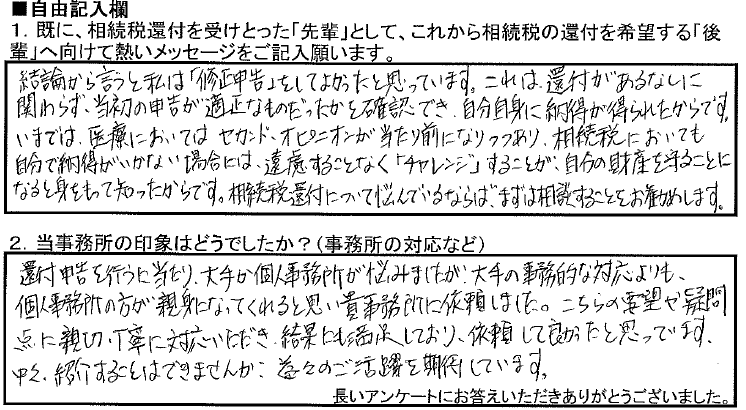 ■自由記入欄
1．既に、相続税還付を受けとった「先輩」として、これから相続税の還付を希望する「後
輩」へ向けて熱いメッセージをご記入願います。
結論から言うと私は「修正申告」をしてよかったと思っています。これは、還付があるなしに
関わらず、当初の申告が適正なものだったかを確認でき、自分自身に納得が得られたからです。
いまでは、医療においてはセカンド、オピニオンが当たり前になりつつあり、相続税においても
自分で納得がいかない場合には、遠慮することなく「チャレンジ」することが、自分の財産を守ることに
なると身をもって知ったからです。相続税還付について悩んでいるならば、まずは相談することをお勧めします。
2．当事務所の印象はどうでしたか？（事務所の対応など）
還付申告を行うに当たり、大手か個人事務所が悩みましたが、大手の事務的な対応よりも、
個人事務所の方が親身になってくれると思い貴事務所に依頼しました。こちらの要望や疑問
点に親切、丁寧に対応いただき、結果にも満足しており、依頼して良かったと思っています。
中々、紹介することはできませんが、益々のご活躍を期待しています。
長いアンケートにお答えいただきありがとうございました。